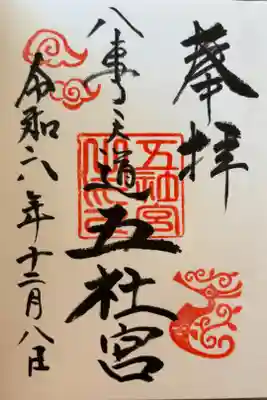 奉拝
八事天道
五社宮
令和六年十二月八日
五社宮